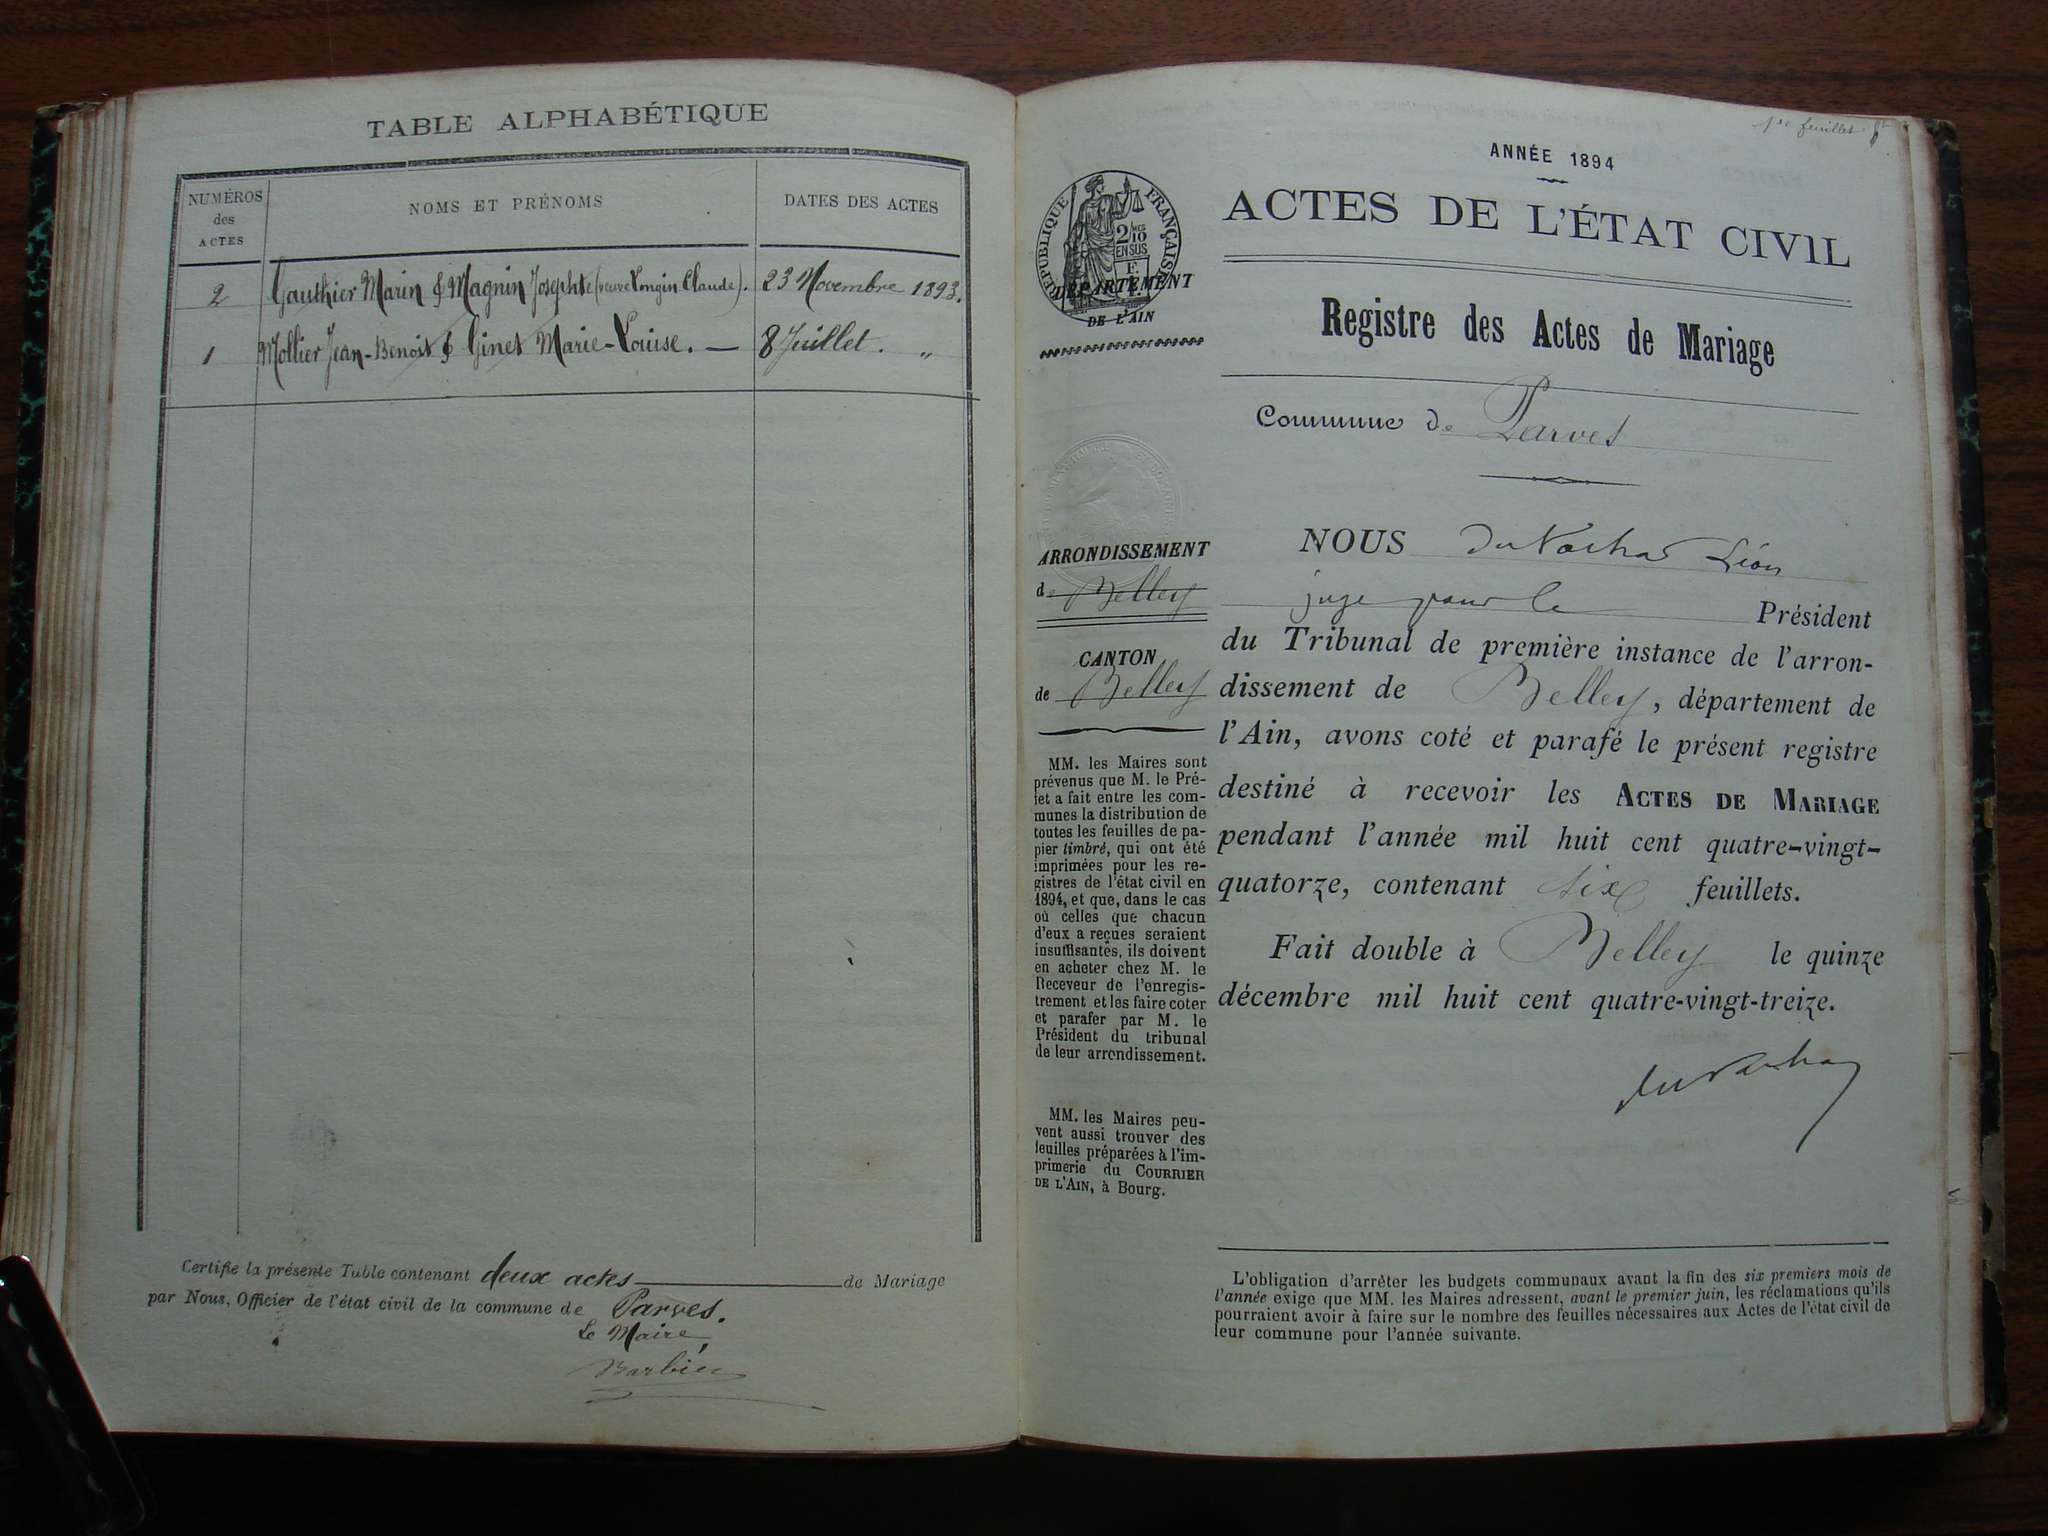 TABLE ALPHABÉTIQUE
NUMÉROS
des
ACTES
NOMS ET PRÉNOMS
DATES DES ACTES
2 Gauthier Marin & Magnin Josephte (veuve Longin Claude). 23 Novembre 1893.
1 Mollier Jean-Benoit & Ginet Marie-Louise. — 8 Juillet. "
Certifie la présente Table contenant deux actes de Mariage
par Nous, Officier de l'état civil de la commune de Parves.
Le Maire,
Barbier
1er feuillet
ANNÉE 1894
ACTES DE L'ÉTAT CIVIL
RÉPUBLIQUE FRANÇAISE
2/10
EN SUS
DÉPARTEMENT
DE L'AIN
Registre des Actes de Mariage
Commune de Parves
ARRONDISSEMENT
de Belley
CANTON
de Belley
MM. les Maires sont
prévenus que M. le Pré-
fet a fait entre les com-
munes la distribution de
toutes les feuilles de pa-
pier timbré, qui ont été
imprimées pour les re-
gistres de l'état civil en
1894, et que, dans le cas
où celles que chacun
d'eux a reçues seraient
insuffisantes, ils doivent
en acheter chez M. le
Receveur de l'enregis-
trement et les faire coter
et parafer par M. le
Président du tribunal
de leur arrondissement.
MM. les Maires peu-
vent aussi trouver des
feuilles préparées à l'im-
primerie du COURRIER
DE L'AIN, à Bourg.
NOUS Léon
juge pour le Président
du Tribunal de première instance de l'arron-
dissement de Belley, département de
l'Ain, avons coté et parafé le présent registre
destiné à recevoir les ACTES DE MARIAGE
pendant l'année mil huit cent quatre-vingt-
quatorze, contenant six feuillets.
Fait double à Belley le quinze
décembre mil huit cent quatre-vingt-treize.
L'obligation d'arrêter les budgets communaux avant la fin des six premiers mois de
l'année exige que MM. les Maires adressent, avant le premier juin, les réclamations qu'ils
pourraient avoir à faire sur le nombre des feuilles nécessaires aux Actes de l'état civil de
leur commune pour l'année suivante.